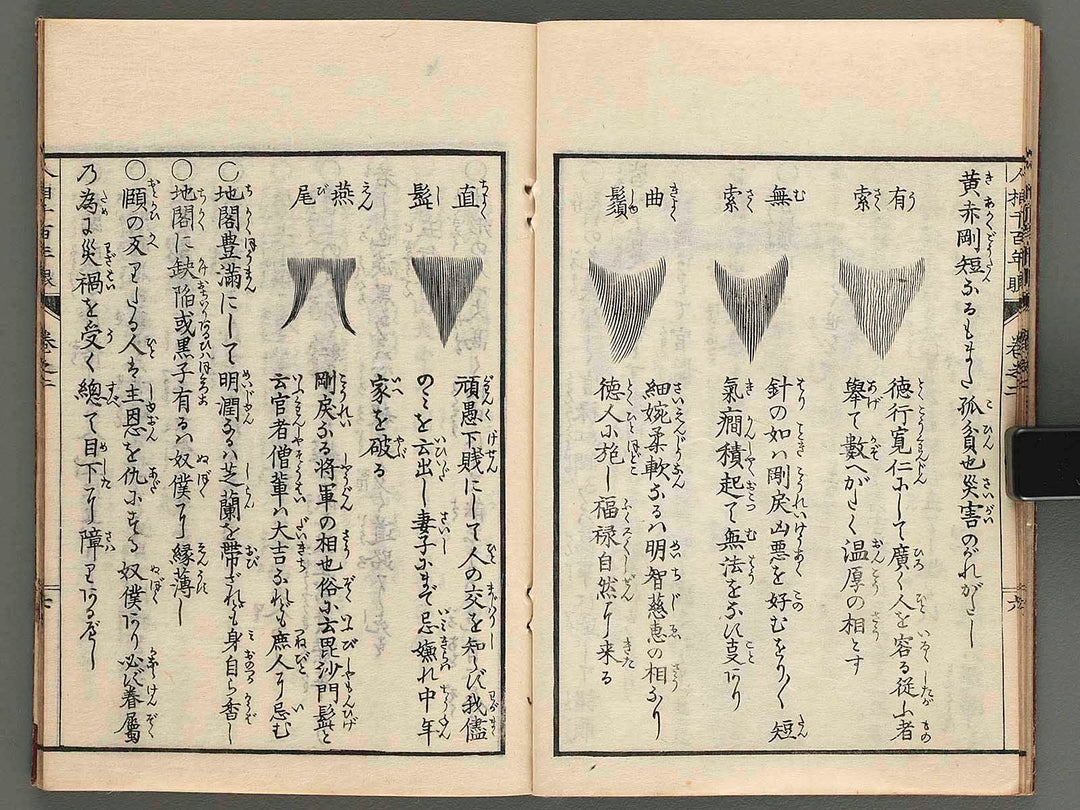 黄赤剛短なるもまた孤貧也災害のがれがたし
有索
徳行寛仁にして廣く人を容る従ふ者
擧て數へがたく温厚の相とす
無索
針の如きは剛戻凶悪を好むをもつて短
氣癇積起て無法をなす事あり
曲鬚
細婉柔軟なるは明智慈恵の相なり
徳人に施し福禄自然に来る
直髭
頑愚下賤にして人の交を知らず我儘
のミを云出し妻子にまで忌嫌れ中年
家を破る
燕尾
剛戻なる将軍の相也俗に云毘沙門髭と
云官者僧輩ハ大吉なれども庶人ハ忌む
〇地閣豊滿にして明潤なるハ芝蘭を帯ざれども身自ら香し
〇地閣に缺陥或黒子有るハ奴僕に縁薄し
〇頤の反りたる人は主恩を仇にする奴僕あり必ず眷屬
乃為に災禍を受く總て目下に障りあるべし
人相千百年眼
巻之二